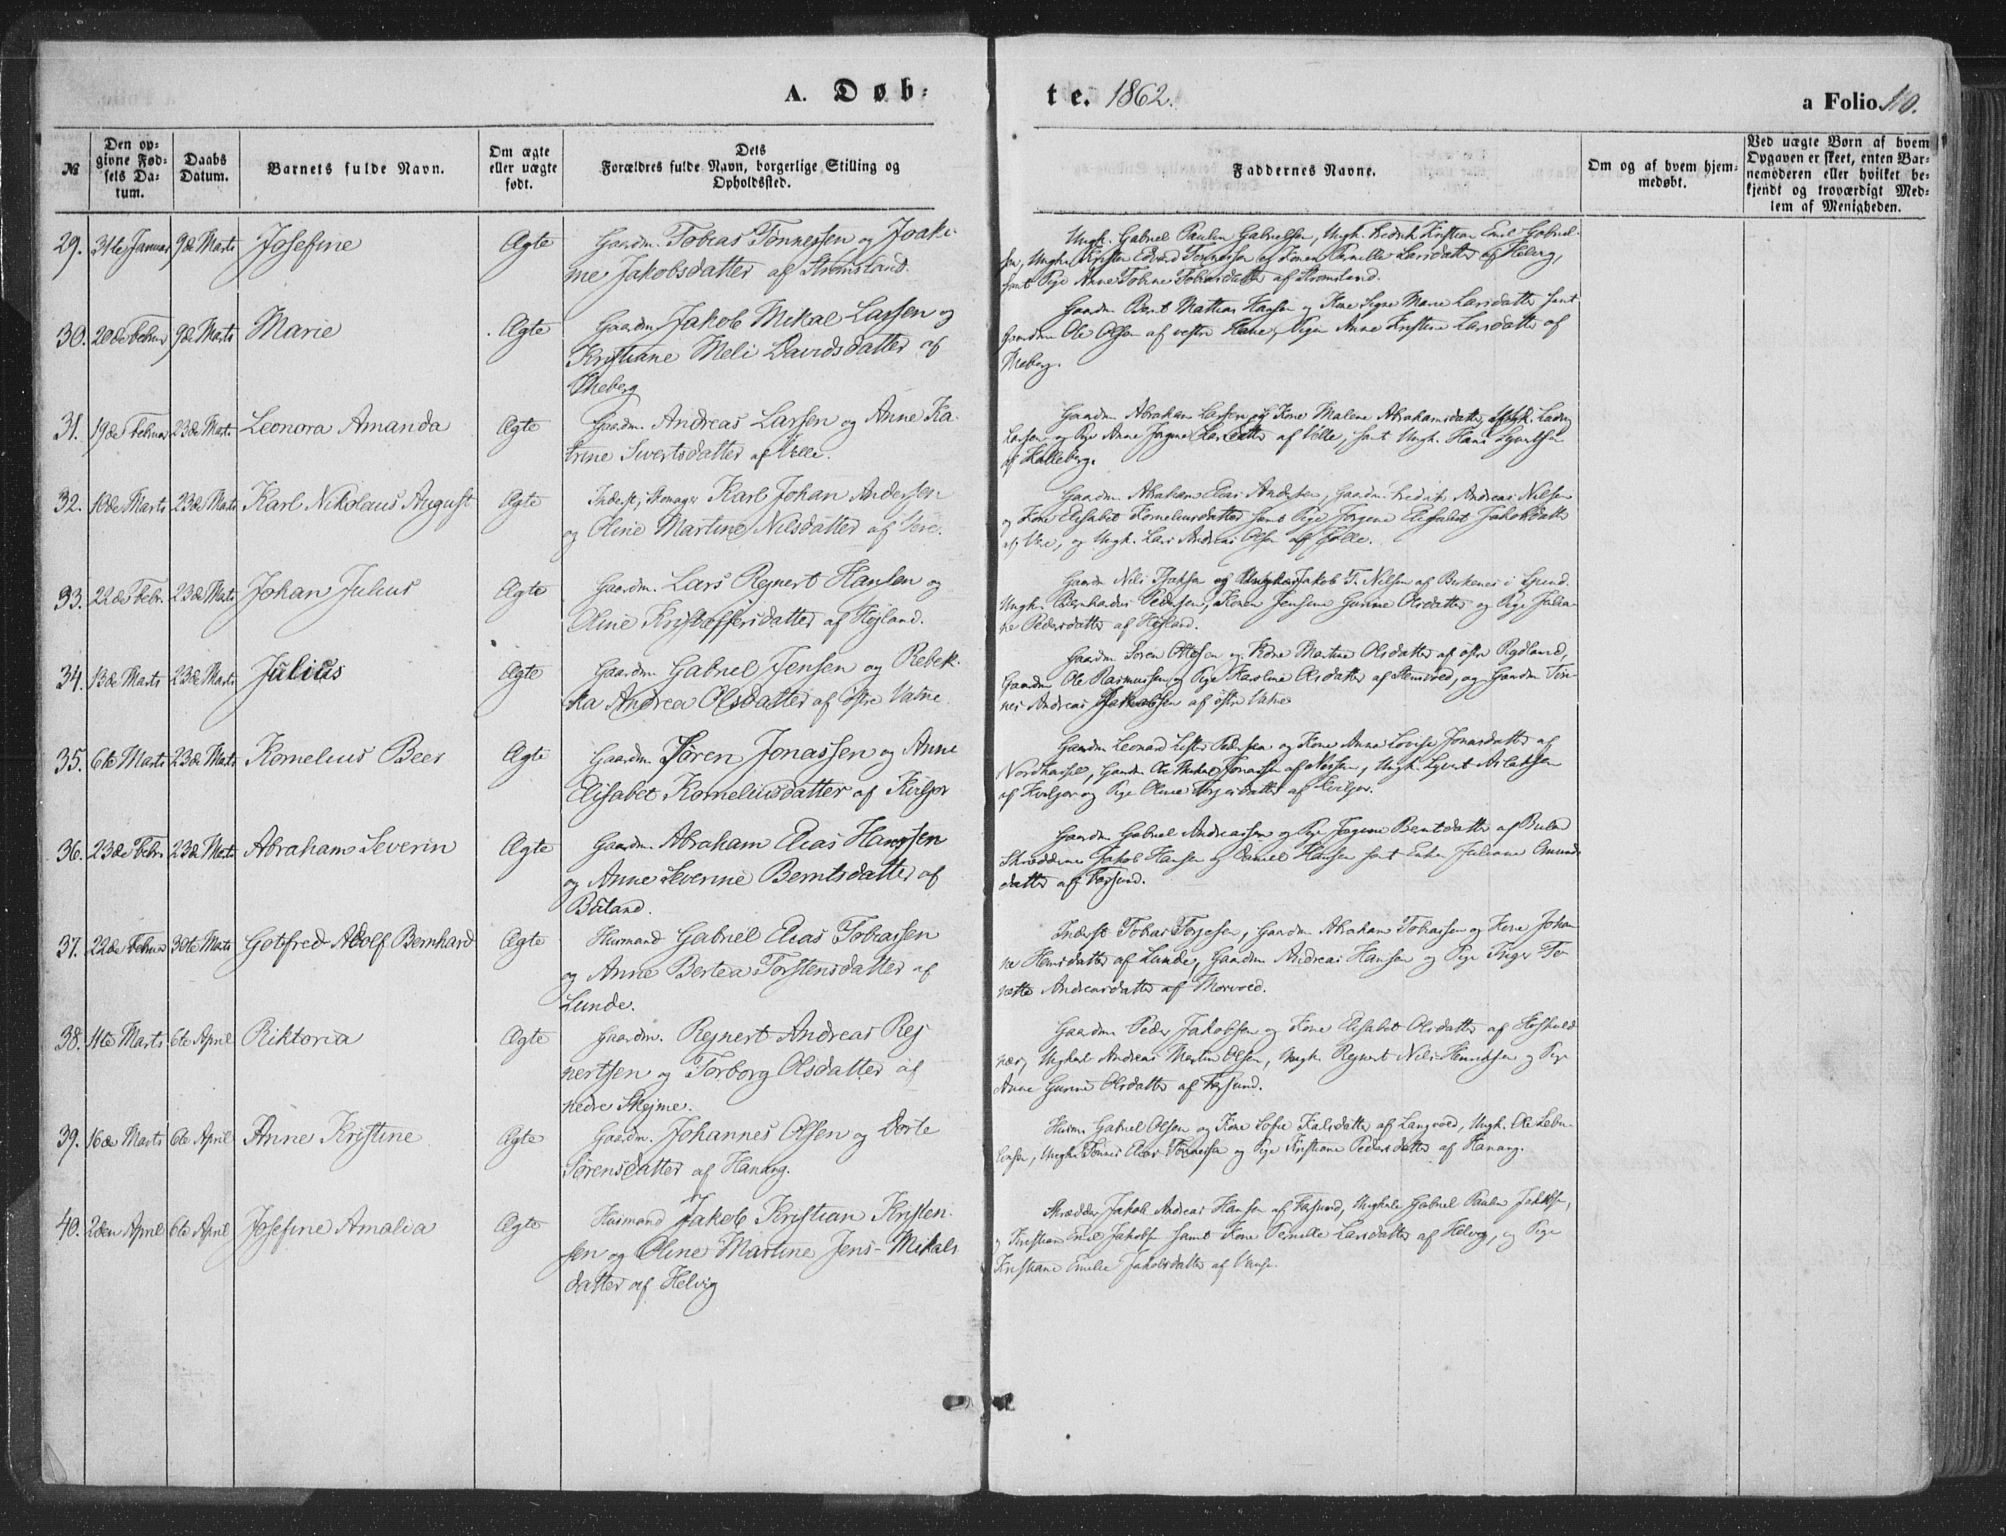 A. Døb-
te. 1862.
a Folio 110.
№
Den op-
givne Fød-
sels Da-
tum.
Daabs
Datum.
Barnets fulde Navn.
Om ægte
eller uægte
født.
Dets
Forældres fulde Navn, borgerlige Stilling og
Opholdssted.
Faddernes Navne.
Om og af hvem hjem-
medøbt.
Ved uægte Børn af hvem
Opgaven er skeet, enten Bar-
nemoderen eller hvilket be-
kjendt og troværdigt Med-
lem af Menigheden.
29. 31te Januar 9de Marts Josefine Ægte Gaardm. Tobias Tønnessen og Joaki-
ne Jakobsdatter af Strømsland.
Ungk. Gabriel Paulin Gabrielsen, Ungk. Fredrik Kristian Emil Gabriel-
sen, Ungk. Edvard Tønnessen og Konen Pernille Larsdatter af Helvig,
samt Pige Anne Tobine Tobiasdatter af Strømsland.
30. 20de Februar 9de Marts Marie Ægte Gaardm. Jakob Mikal Larsen og
Kristiane Meli Davidsdatter af
Skeberg
Gaardm Bent Mathias Hansen og Kone Signe Marie Larsdatter samt
Gaardm Ole Olsen af vestre Hane, Pige Anne Kristine Larsdatter af
Skeberg.
31. 19de Februar 23de Marts Leonora Amanda Ægte Gaardm. Andreas Larsen og Anne Ka-
trine Sivertsdatter af Velle.
Gaardm Abraham Larsen og Kone Malene Abrahamsdatter, Ungk. Ludvig
Larsen og Pige Anne Jørgine Larsdatter af Velle, samt Ungk. Hans Syvertsen
af Kalleberg.
32. 10de Marts 23de Marts Karl Nikolaus August Ægte Inderst, Skomager Karl Johan Andersen
og Oline Martine Nilsdatter af Vere.
Gaardm Abraham Elias Andersen, Gaardm. Andreas Nilsen
og Kone Elisabet Korneliusdatter samt Pige Jørgine Elisabet Jakobsdatter
af Vere, og Ungk. Lars Andreas Olsen af Jølle.
33. 22de Febr. 23de Marts Johan Julius Ægte Gaardm. Lars Rejnert Hansen og
Oline Kristoffersdatter af Højland.
Gaardm Nils Isaksen og Ungkar Jakob T. Nilsen af Birkenes i Spind
Ungk. Bernhardus Pedersen, Konen Jensine Gurine Olsdatter og Pige Julia-
ne Pedersdatter af Højland.
34. 13de Marts 23de Marts Julius Ægte Gaardm. Gabriel Jensen og Rebek-
ka Andrea Olsdatter af østre Vatne
Gaardm Søren Ottesen og Kone Martine Olsdatter af østre Rødland,
Gaardm Ole Rasmussen og Pige Karoline Olsdatter af Stensvold, og Gaardm Tøn-
nes Andreas Jakobsen af østre Vatne
35. 6te Marts 23de Marts Kornelius Beer Ægte Gaardm. Søren Jonassen og Anne
Elisabet Korneliusdatter af Kviljor
Gaardm Leonard Lister Pedersen og Kone Anne Lovise Jonasdatter af
Nordhassel, Gaardm Ole Mikal Jonassen af Nesseim, Ungk. Syvert
af Kviljor og Pige Oline af Kviljor.
36. 23de Febr. 23de Marts Abraham Severin Ægte Gaardm. Abraham Elias Hansen
og Anne Severine Berntsdatter af
Bøland.
Gaardm Gabriel Andreassen og Pige Jørgine Berntdatter af Buland
Skrædderne Jakob Hansen og Daniel Hansen samt Enke Juliane Omunds-
datter af Farsund.
37. 22de Februar 30te Marts Gotfred Adolf Bernhard Ægte Husmand Gabriel Elias Tobiassen
og Anne Bertea Torstensdatter af
Lunde.
Inderst Tobias Terjesen, Gaardm Abraham Tobiassen og Kone Johan-
ne Hansdatter af Lunde, Gaardm Andreas Hansen og Pige Inger To-
nette Andreasdatter af Morvold.
38. 4te Marts 6te April Viktoria Ægte Gaardm. Rejnert Andreas Rej-
nertsen og Torborg Olsdatter af
nedre Skejme.
Gaardm Peder Jakobsen og Kone Elisabet Olsdatter af Hoskuld-
nær, Ungkarl Andreas Martin Olsen, Ungk. Rejnert Nils Henriksen og Pige
Anne Gurine Olsdatter af Farsund.
39. 16de Marts 6te April Anne Kristine Ægte Gaardm. Johannes Olsen og Dorte
Sørensdatter af Hanang.
Husm. Gabriel Olsen og Kone Sofie Kalsdatter af Langvold, Ungk. Ole Lebu-
Ungk. Tønnes Elias Tønnessen og Pige Kristiane Pedersdatter af Hanang.
40. 2den April 6te April Josefine Amalia Ægte Husmand Jakob Kristian Kristen-
sen og Oline Martine Jens-Mikals-
datter af Helvig
Skrædder Jakob Andreas Hansen af Farsund, Ungkarle Gabriel Paulin Jakobsen,
og Kristian Emil Jakobsen samt Kone Pernille Larsdatter af Helvig, og Pige
Kristiane Emilie Jakobsdatter af Vanse.